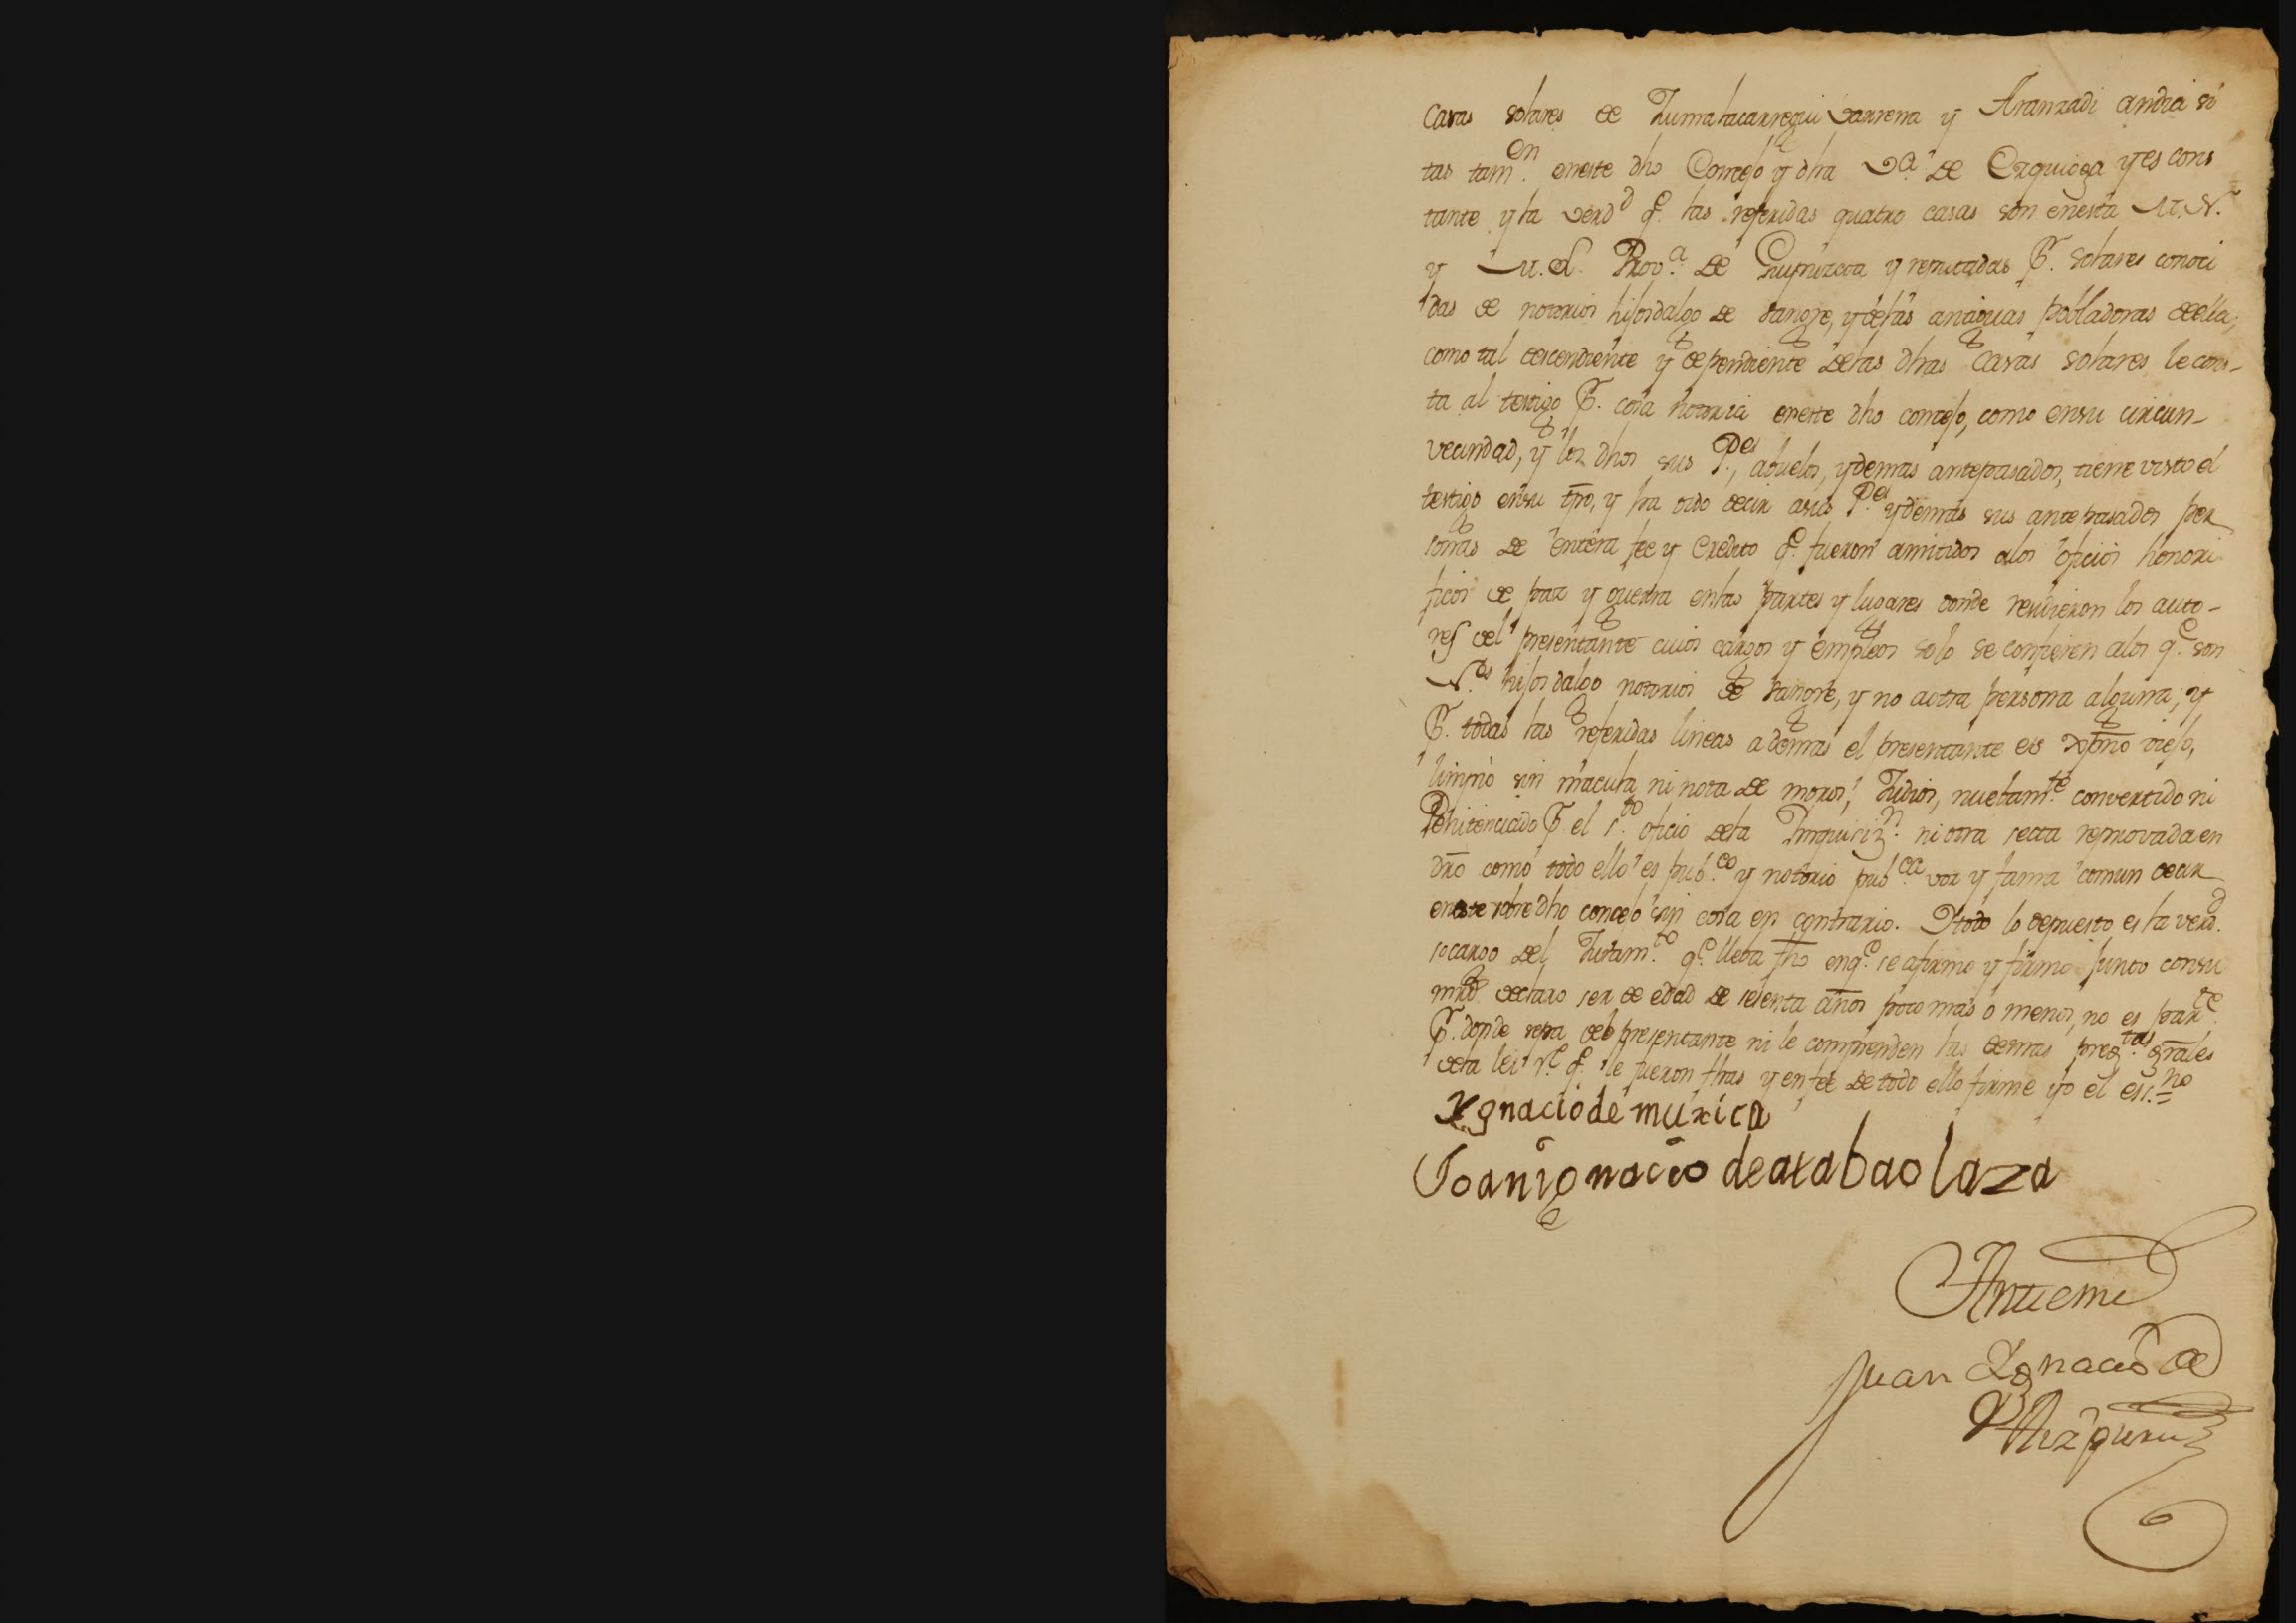 Casas solares de Zumalacarregui varrena y Aranzadi andia si
tas tam.en eneste dho Concejo y dha V.a de Ezquioga y es cons
tante y la verd.d q.e las referidas quatro casas son enesta M.N.
y M.L. Prov.a de Guipuzcoa y reputadas P.r solares conoci
das de notorios hijosdalgo de sangre, y delas antiguas pobladoras de ella;
como tal descendiente y dependiente delas dhas Casas solares le cons-
ta al testigo P.r cosa notoria eneste dho concejo, como ensu circun-
vecindad, y los dhos sus P.es, abuelos, y demas antepasados, tiene visto el
testigo ensu tpo, y ha oido decir asus P.es y demas sus antepasados per
sonas de entera fee y Credito q.e fueron amitidos alos oficios honori
ficos de paz y guerra enlas partes y lugares donde residieron los auto-
res del presentante cuios cargos y empleos solo se confieren alos q.e son
N.es hijosdalgo notorios de sangre, y no aotra persona alguna; y
P.r todas las referidas lineas ademas el presentante es xptno viejo,
limpio sin macula ni nota de moros, Judios, nuebam.te convertido ni
Penitenciado P.r el s.to oficio dela Inquiciz.n ni otra secta reprovada en
dro como todo ello es pub.co y notorio pub.ca voz y fama comun decir
eneste sobredho concejo sin cosa en contrario. Y todo lo depuesto es la verd.d
socargo del Juram.to q.e lleba fho enq.e se afirmo y firmo junto consu
mrd. declaro ser de edad de sesenta años poco mas o menos, no es par.te
P.r donde sepa del presentante ni le comprenden las demas preg.tas grales
dela lei r.l q.e le fueron fhas y en fee de todo ello firme yo el ess.no =
Ygnacio de muxica
Joan ignacio de alabaolaza
Antemi
Juan Ygnacio de
Aizpuru